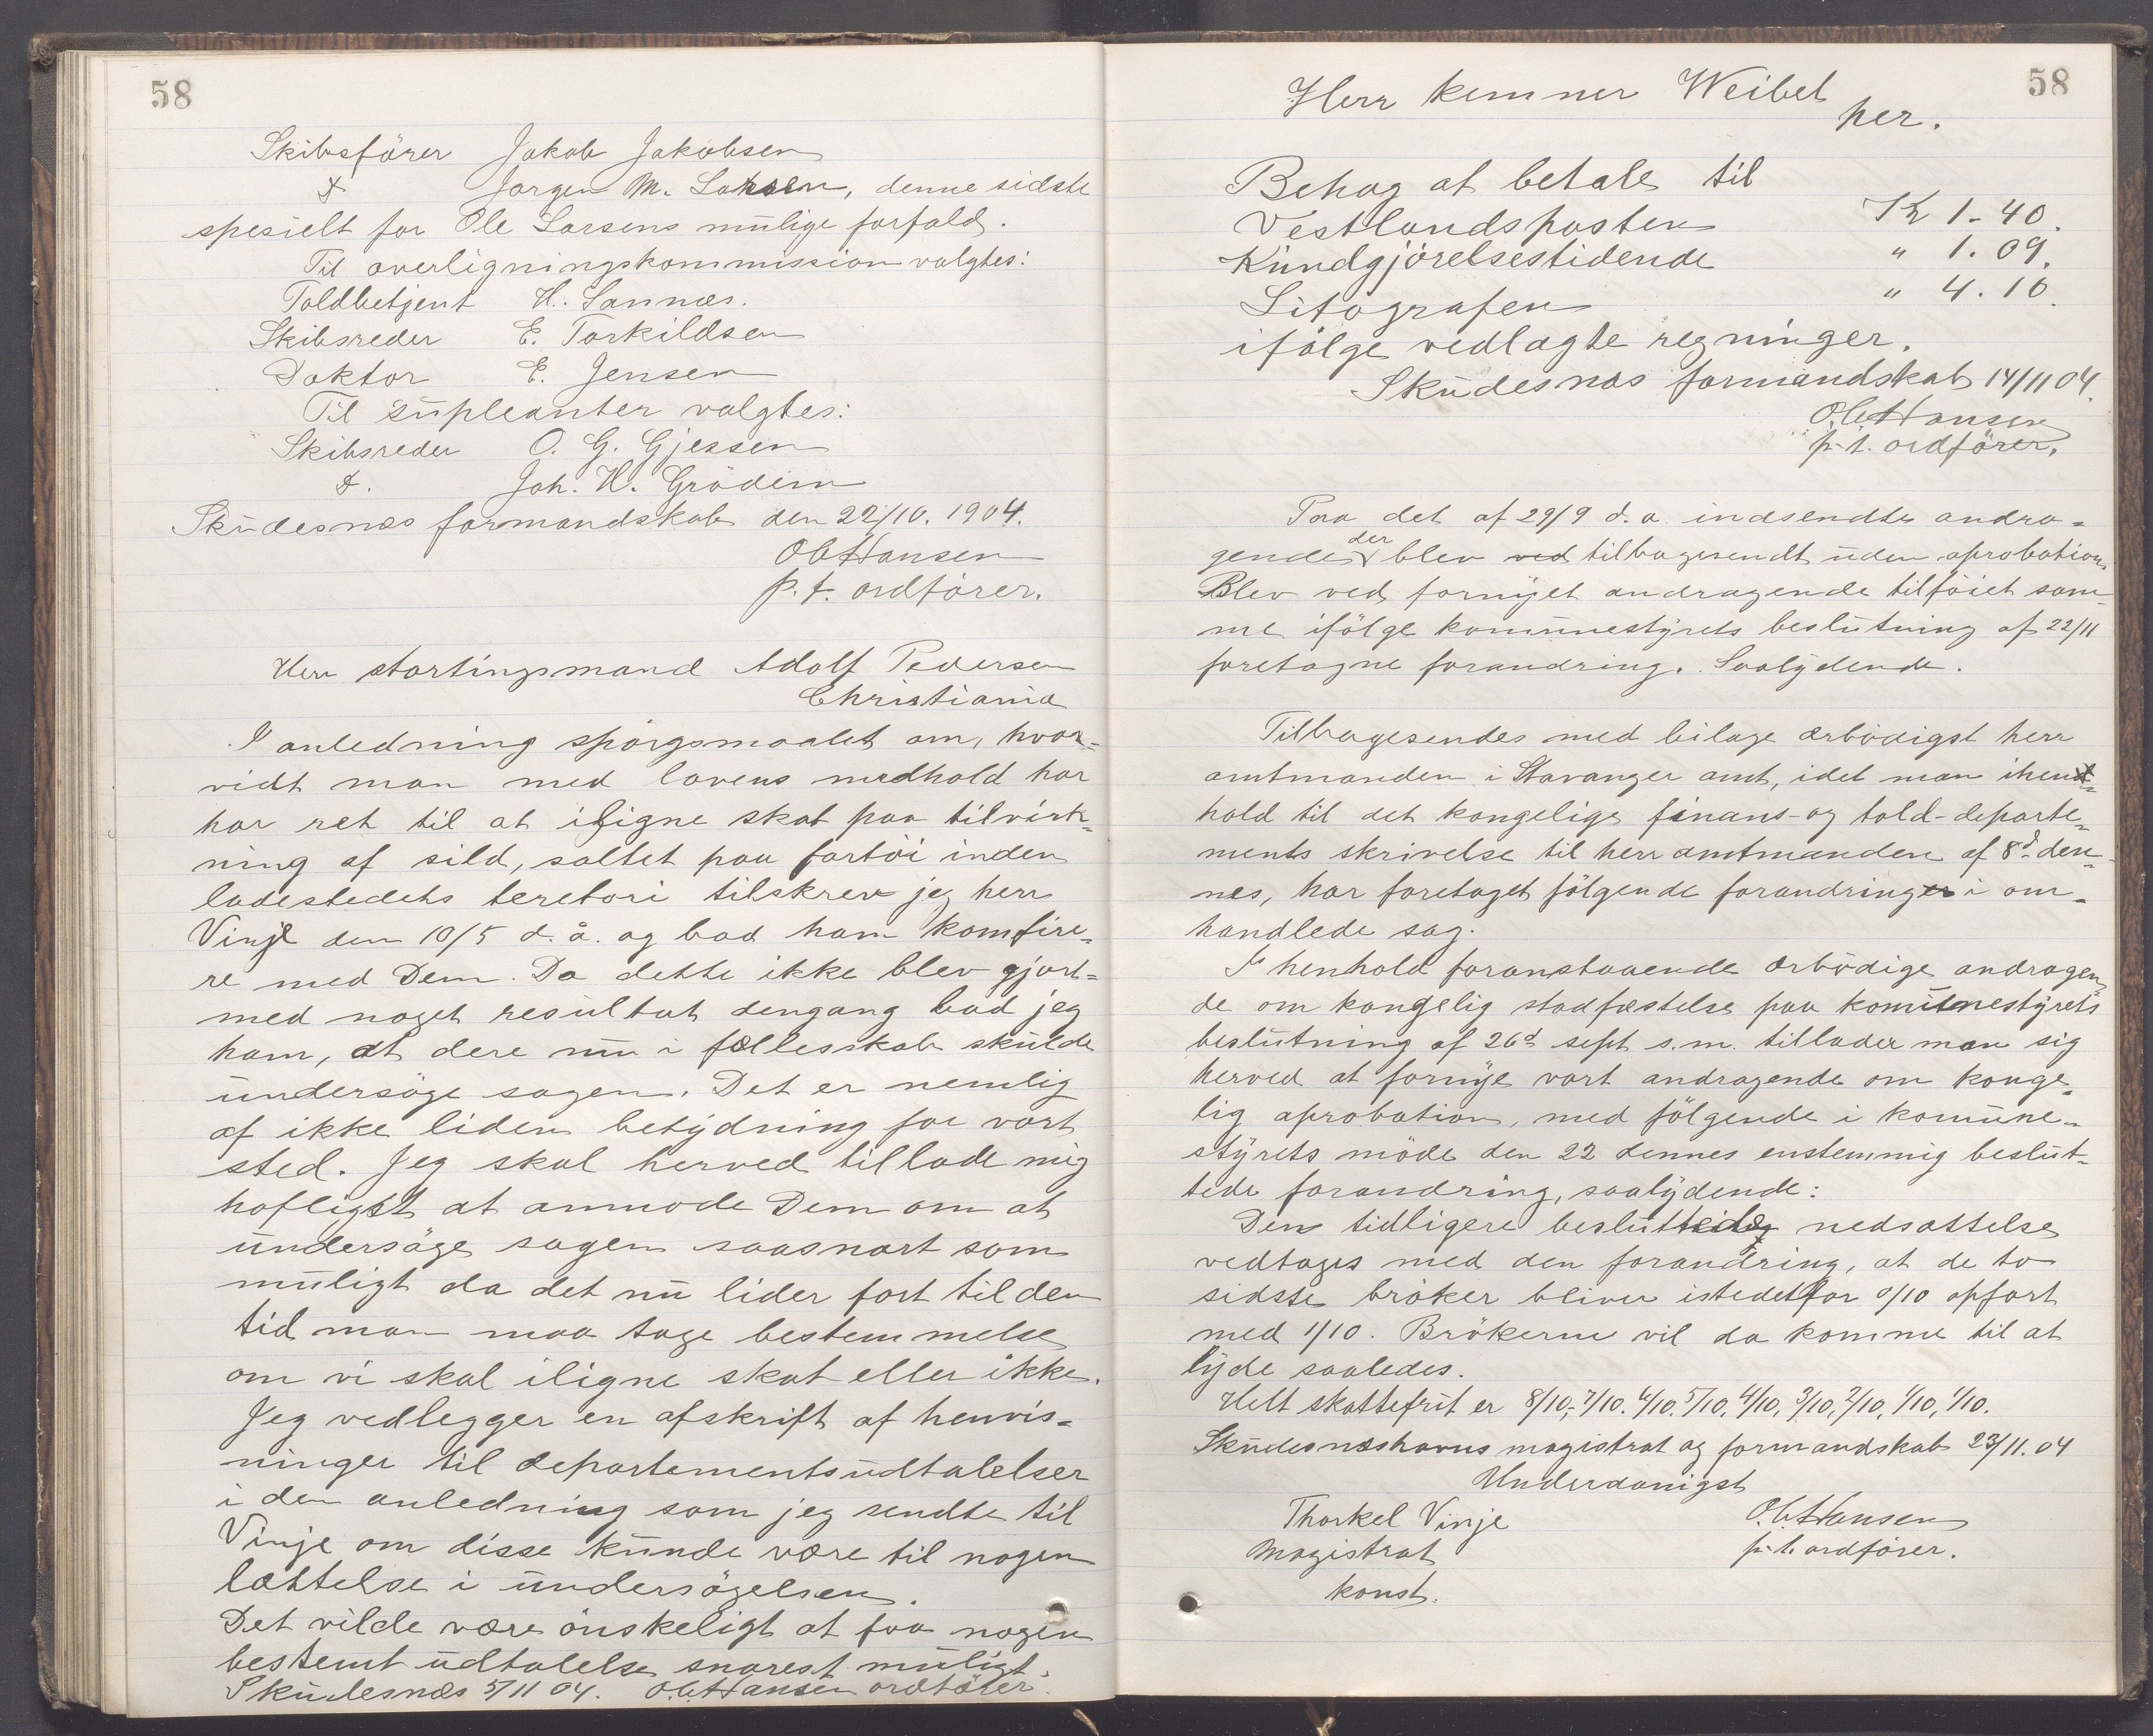 58
Skibsfører Jakob Jakobsen
d Jørgen M. Larsen, denne sidste
spesielt for Ole Larsens mulige forfald.
Til overligningskommission valgtes:
Toldbetjent H. Sannæs.
Skibsreder E. Torkildsen
Doktor E. Jensen
Til supleanter valgtes:
Skibsreder O. G. Gjessen
d. Joh. H. Grödeim
Skudesnæs formandskab den 22/10. 1904.
Ole Hansen
p. t. ordförer.
Herr stortingsmand Adolf Pedersen
Christiania
I anledning spörgsmaalet om, hvor-
vidt man med lovens medhold har
har ret til at iligne skat paa tilvirk-
ning af sild, saltet paa fartöi inden
ladestedets teretori tilskrev jeg herr
Vinje den 10/5 d. å. og bad ham komfire-
re med Dem. Da dette ikke blev gjort
med noget resultat dengang bad jeg
ham, at dere nu i fællesskab skulde
undersöge sagen. Det er nemlig
af ikke liden betydning for vort
sted. Jeg skal herved tillade mig
höfligst at anmode Dem om at
undersöge sagen saasnart som
muligt da det nu lider fort til den
tid man maa tage bestemmelse
om vi skal iligne skat eller ikke.
Jeg vedlegger en afskrift af henvis-
ninger til departementsudtalelser
i den anledning som jeg sendte til
Vinje om disse kunde være til nogen
lættelse i undersögelsen.
Det vilde være önskeligt at faa nogen
bestemt udtalelse snarest muligt.
Skudesnæs 5/11 04. Ole Hansen ordförer.
58
Herr kemner Weibel
her.
Behag at betale til
Vestlandsposten Kr 1-40.
Kundgjörelsestidende " 1.09.
Litografen " 4.10.
ifölge vedlagte regninger.
Skudesnæs formandskab 14/11 04.
Ole Hansen
p. t. ordförer.
Paa det af 29/9 d. a. indsendte andra-
gende der blev ved tilbagesendt uden aprobation
Blev ved fornyet andragende tilföiet sam-
me ifölge kommunestyrets beslutning af 22/11
foretagne forandring. Saalydende.
Tilbagesendes med bilage ærbödigst herr
amtmanden i Stavanger amt, idet man ihen-
hold til det kongelige finans- og told-departe-
ments skrivelse til herr amtmanden af 8d den-
nes, har foretaget fölgende forandringer i om-
handlede sag.
I henhold foranstaaende ærbödige andragen-
de om kongelig stadfæstelse paa komunestyrets
beslutning af 26d sept s.m. tillader man sig
herved at fornye vort andragende om konge-
lig aprobation, med fölgende i komune-
styrets möde den 22 dennes enstemmig beslut-
tede forandring, saalydende:
Den tidligere besluttede nedsættelse
vedtages med den forandring, at de to
sidste bröker bliver istedetfor 0/10 opfört
med 1/10. Brökerne vil da komme til at
lyde saaledes.
Helt skattefrit er 8/10, 7/10. 6/10. 5/10, 4/10, 3/10, 2/10, 1/10, 1/10.
Skudesnæshavns magistrat og formandskab 23/11. 04
Underdanigst
Thorkel Vinje Ole Hansen
magistrat p. t. ordförer.
konst.